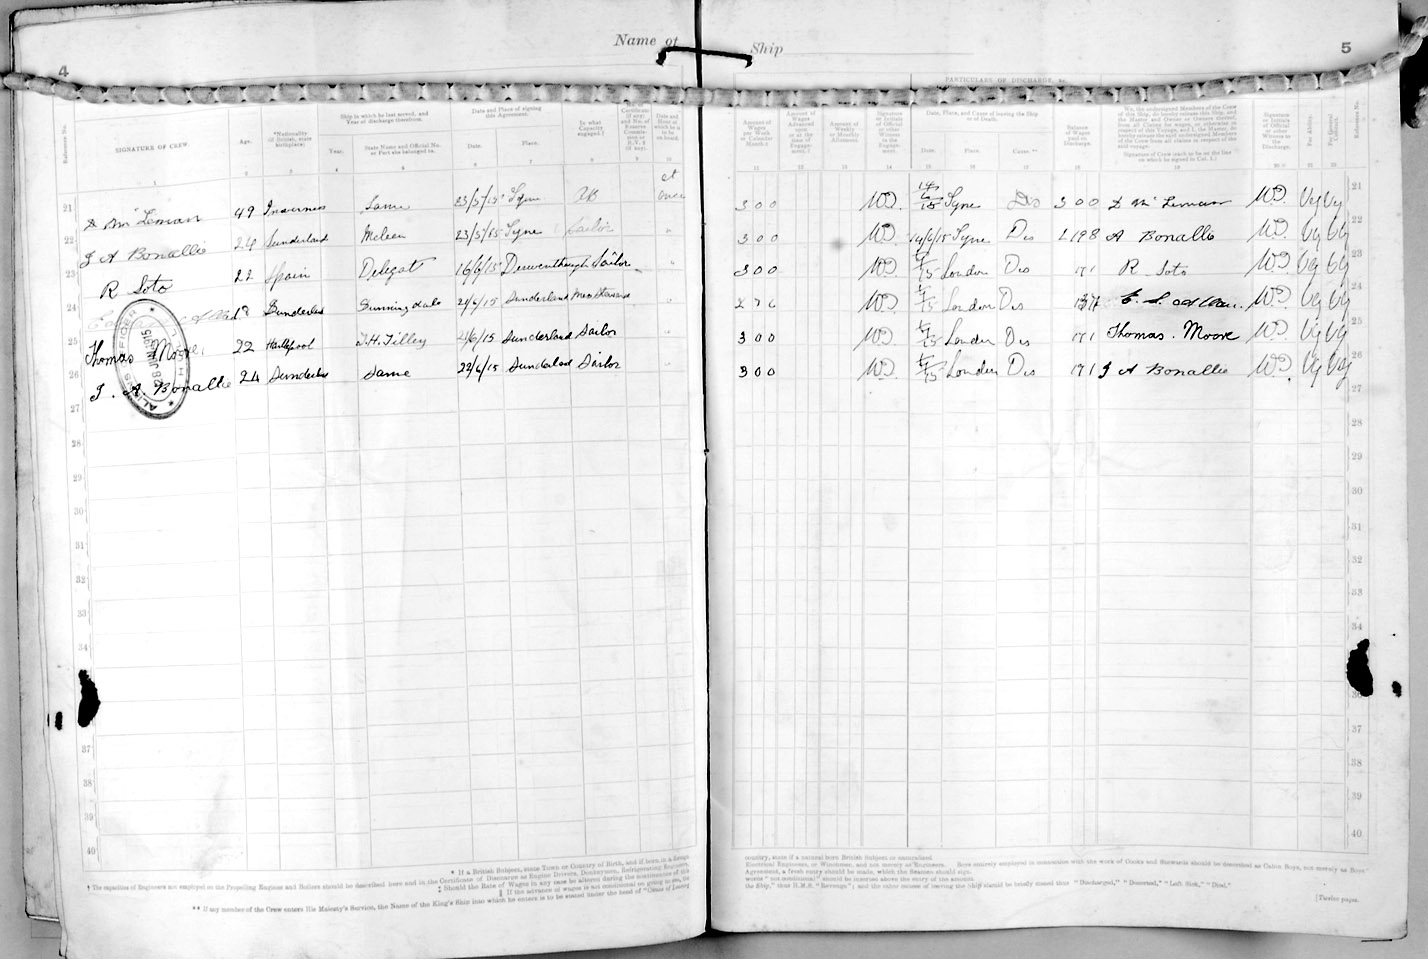 Name of Ship
4
5
PARTICULARS OF DISCHARGE, &c.
Reference No.
SIGNATURE OF CREW.
Age.
*Nationality (if British, state birthplace).
Ship in which he last served, and Year of discharge therefrom.
Year.
State Name and Official No. or Port she belonged to.
Date and Place of signing this Agreement.
Date.
Place.
In what Capacity engaged.†
Date and Hour at which he is to be on board.
Amount of Wages per Week or Calendar Month ‡
Amount of Wages Advanced upon or at the time of Engagement. §
Amount of Weekly or Monthly Allotment.
Signature or Initials of Official or other Witness to the Engagement.
Date, Place, and Cause of leaving the Ship or of Death.
Date.
Place.
Cause.**
Balance of Wages paid on Discharge.
Signature of Crew (each to be on the line on which he signed in Col. 1.)
Signature or Initials of Official or other Witness to the Discharge.
For Ability.
Reference No.
at once
21 D McLeman 49 Inverness Same 23/5/15 Tyne AB 3 0 0 WD. 14/6/15 Tyne Dis 3 0 0 D McLeman WD. Vg Vg 21
22 J A Bonallie 24 Sunderland McLeen 23/5/15 Tyne Sailor " 3 0 0 WD. 14/6/15 Tyne Dis 1 19 8 A Bonallie WD Vg Vg 22
23 R Soto 22 Spain Delegat 16/6/15 Derwenthaugh Sailor " 3 0 0 WD. London Dis 1 7 1 R Soto WD Vg Vg 23
24 18 Sunderland Sunningdale 21/6/15 Sunderland Mess Steward " 2 7 6 WD. London Dis WD. Vg Vg 24
25 Thomas Moore 22 Hartlepool J.H. Tilley 21/6/15 Sunderland Sailor " 3 0 0 WD. London Dis 1 7 1 Thomas. Moore WD Vg Vg 25
26 J. A Bonallie 24 Sunderland Same 22/6/15 Sunderland Sailor " 3 0 0 WD. London Dis 1 7 1 J A Bonallie WD. Vg Vg 26
27 27
28 28
29 29
30 30
31 31
32 32
33 33
34 34
37 37
38 38
39 39
40 40
* If a British Subject, state Town or Country of Birth, and if born in a foreign country, state if a natural born British Subject or naturalised
† The capacities of Engineers not employed on the Propelling Engines and Boilers should be described here and in the Certificate of Discharge as Engine Drivers, Donkeymen, Refrigerating Engineers, Electrical Engineers, or Winchmen, and not merely as Engineers. Boys entirely employed in connection with the work of Cooks and Stewards should be described as Cabin Boys, not merely as Boys
‡ Should the Rate of Wages in any case be altered during the continuance of this Agreement, a fresh entry should be made, which the Seaman should sign.
§ If the advance of wages is not conditional on going to sea, the words "not conditional" should be inserted above the entry of the amount.
** If any member of the Crew enters His Majesty's Service, the Name of the King's Ship into which he enters is to be stated under the head of "Cause of Leaving the Ship," thus H.M.S. "Revenge"; and the other causes of leaving the Ship should be briefly stated thus "Discharged," "Deserted," "Left Sick," "Died."
[Twelve pages.